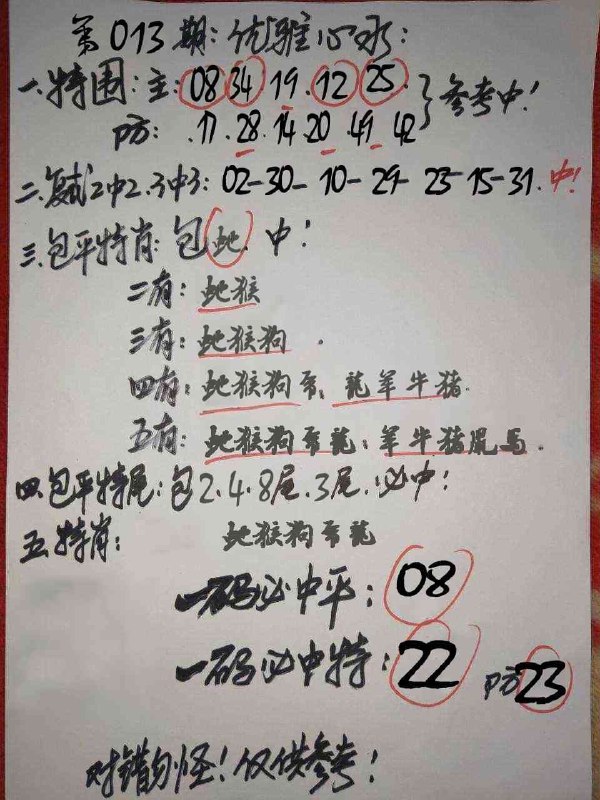 第013期:优雅心水:
一.特围:主:08 34 19.12 25 }参考中!
防:.17.28.14.20.49.42
二.复式2中2.3中3:02-30-10-29-23-15-31.中!
三.包平特肖:包蛇.中!
二有:蛇猴
三有:蛇猴狗.
四有:蛇猴狗、龍羊牛猪.
五有:蛇猴狗龍:羊牛猪鼠马.
四.包平特尾:包2.4.8尾.3尾.必中!
五.特肖: 蛇猴狗龍
一码必中平:08
一码必中特:22 防23
对错勿怪!仅供参考!